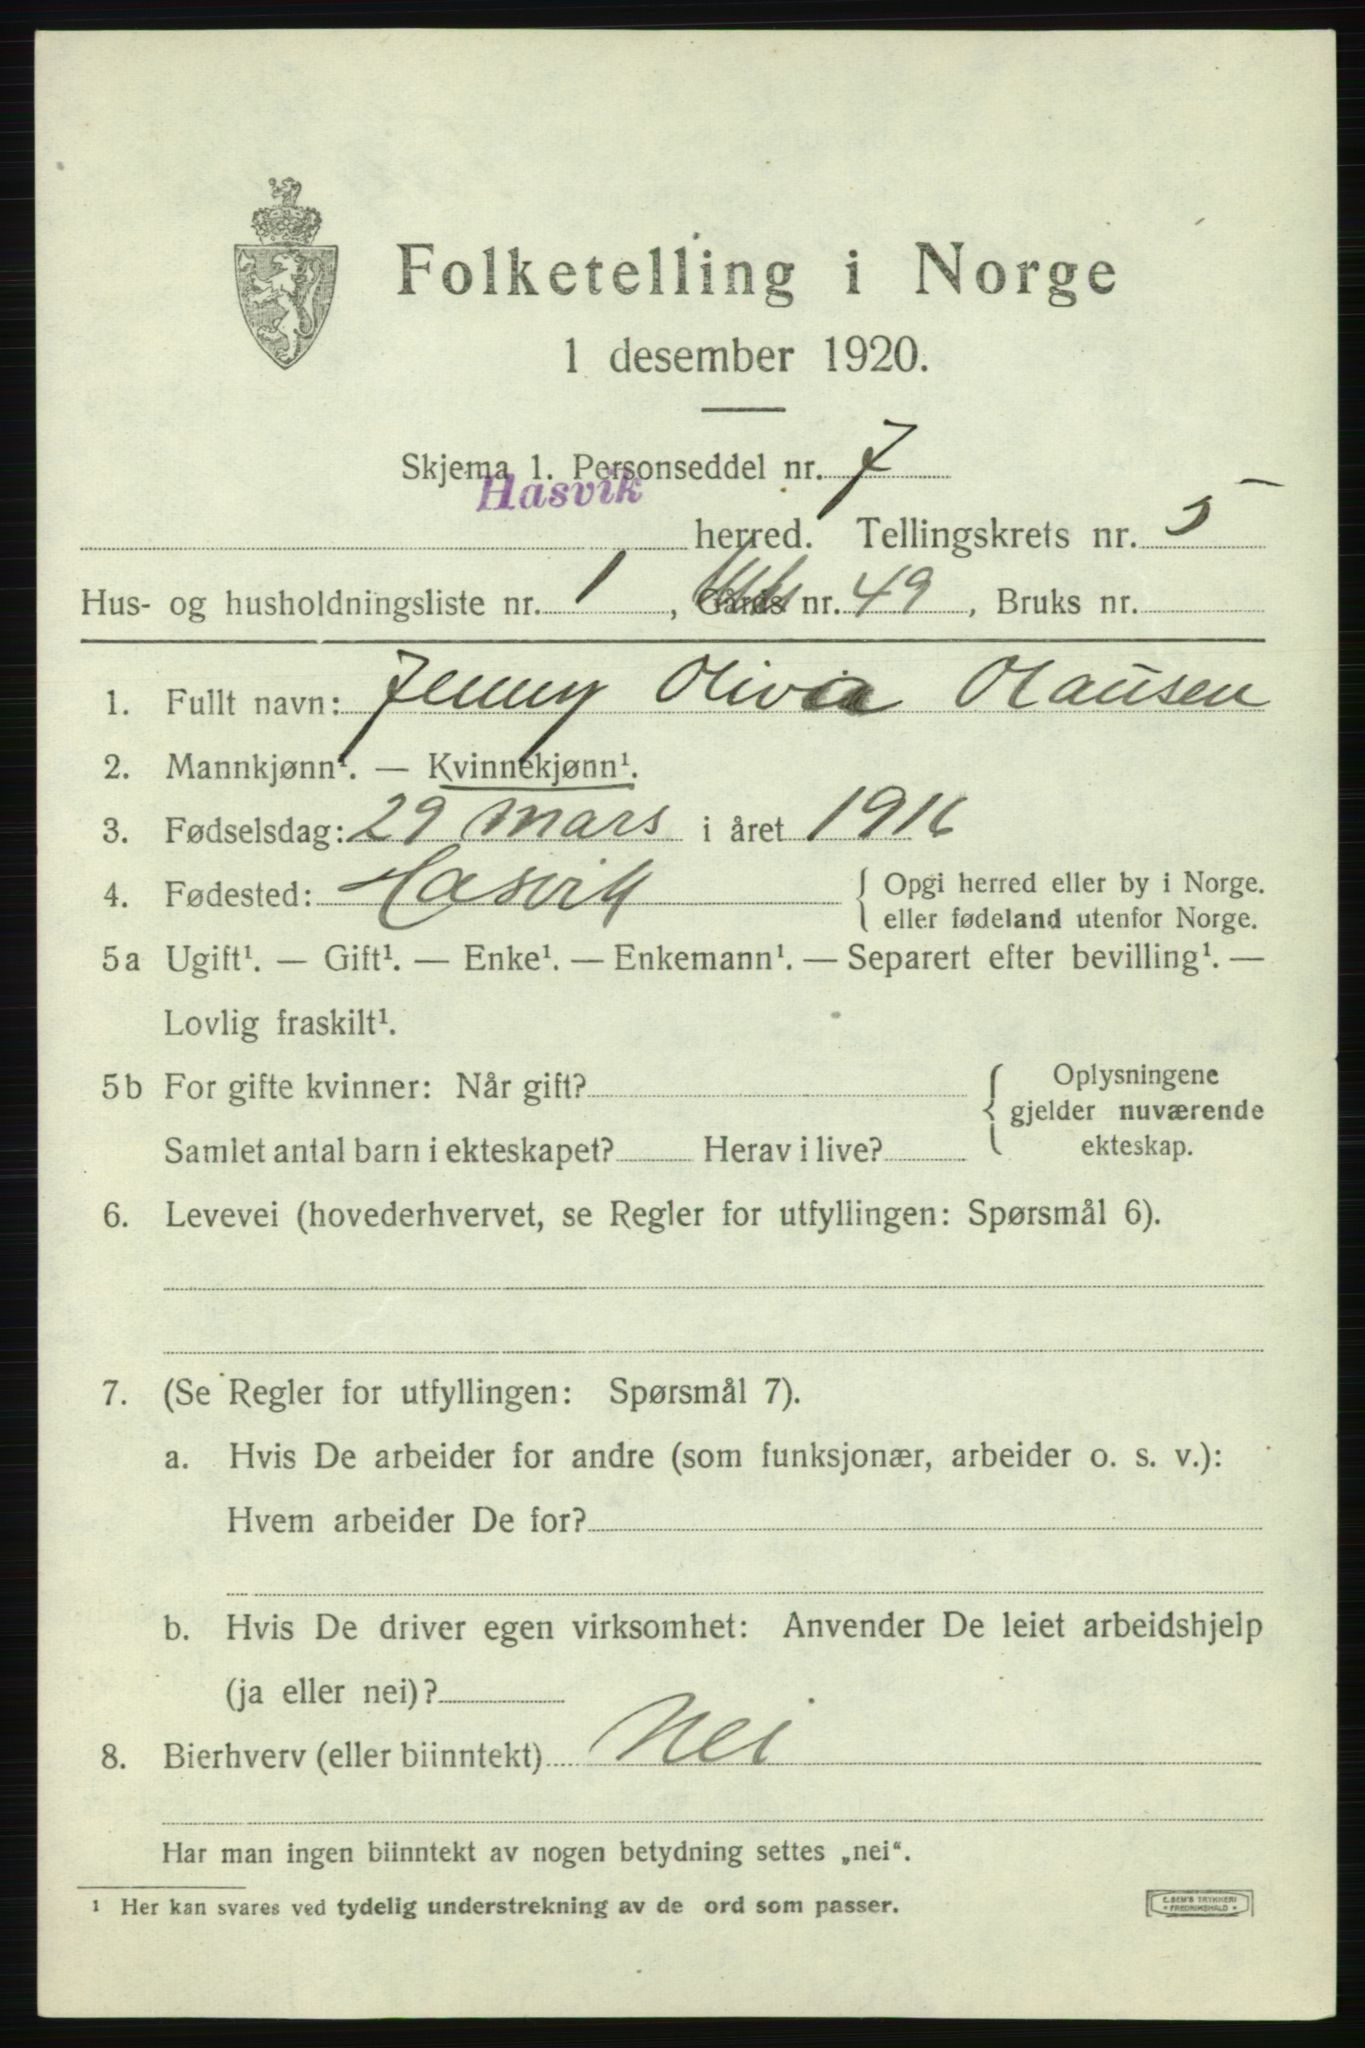 Folketelling i Norge
1 desember 1920.
Skjema 1. Personseddel nr. 7
Hasvik
herred. Tellingskrets nr. 5
Hus- og husholdningsliste nr. 1, Gårds nr. 49, Bruks nr.
1. Fullt navn: Jenny Olivia Olausen
2. Mannkjønn¹. — Kvinnekjønn¹.
3. Fødselsdag: 29 mars i året 1916
4. Fødested: Hasvik { Opgi herred eller by i Norge.
eller fødeland utenfor Norge.
5a Ugift¹. — Gift¹. — Enke¹. — Enkemann¹. — Separert efter bevilling¹. —
Lovlig fraskilt¹.
5b For gifte kvinner: Når gift? { Oplysningene
gjelder nuværende
Samlet antal barn i ekteskapet? Herav i live? ekteskap.
6. Levevei (hovederhvervet, se Regler for utfyllingen: Spørsmål 6).
7. (Se Regler for utfyllingen: Spørsmål 7).
a. Hvis De arbeider for andre (som funksjonær, arbeider o. s. v.):
Hvem arbeider De for?
b. Hvis De driver egen virksomhet: Anvender De leiet arbeidshjelp
(ja eller nei)?
8. Bierhverv (eller biinntekt) Nei
Har man ingen biinntekt av nogen betydning settes „nei“.
¹ Her kan svares ved tydelig understrekning av de ord som passer.
E. SEM'S TRYKKERI
FREDRIKSHALD